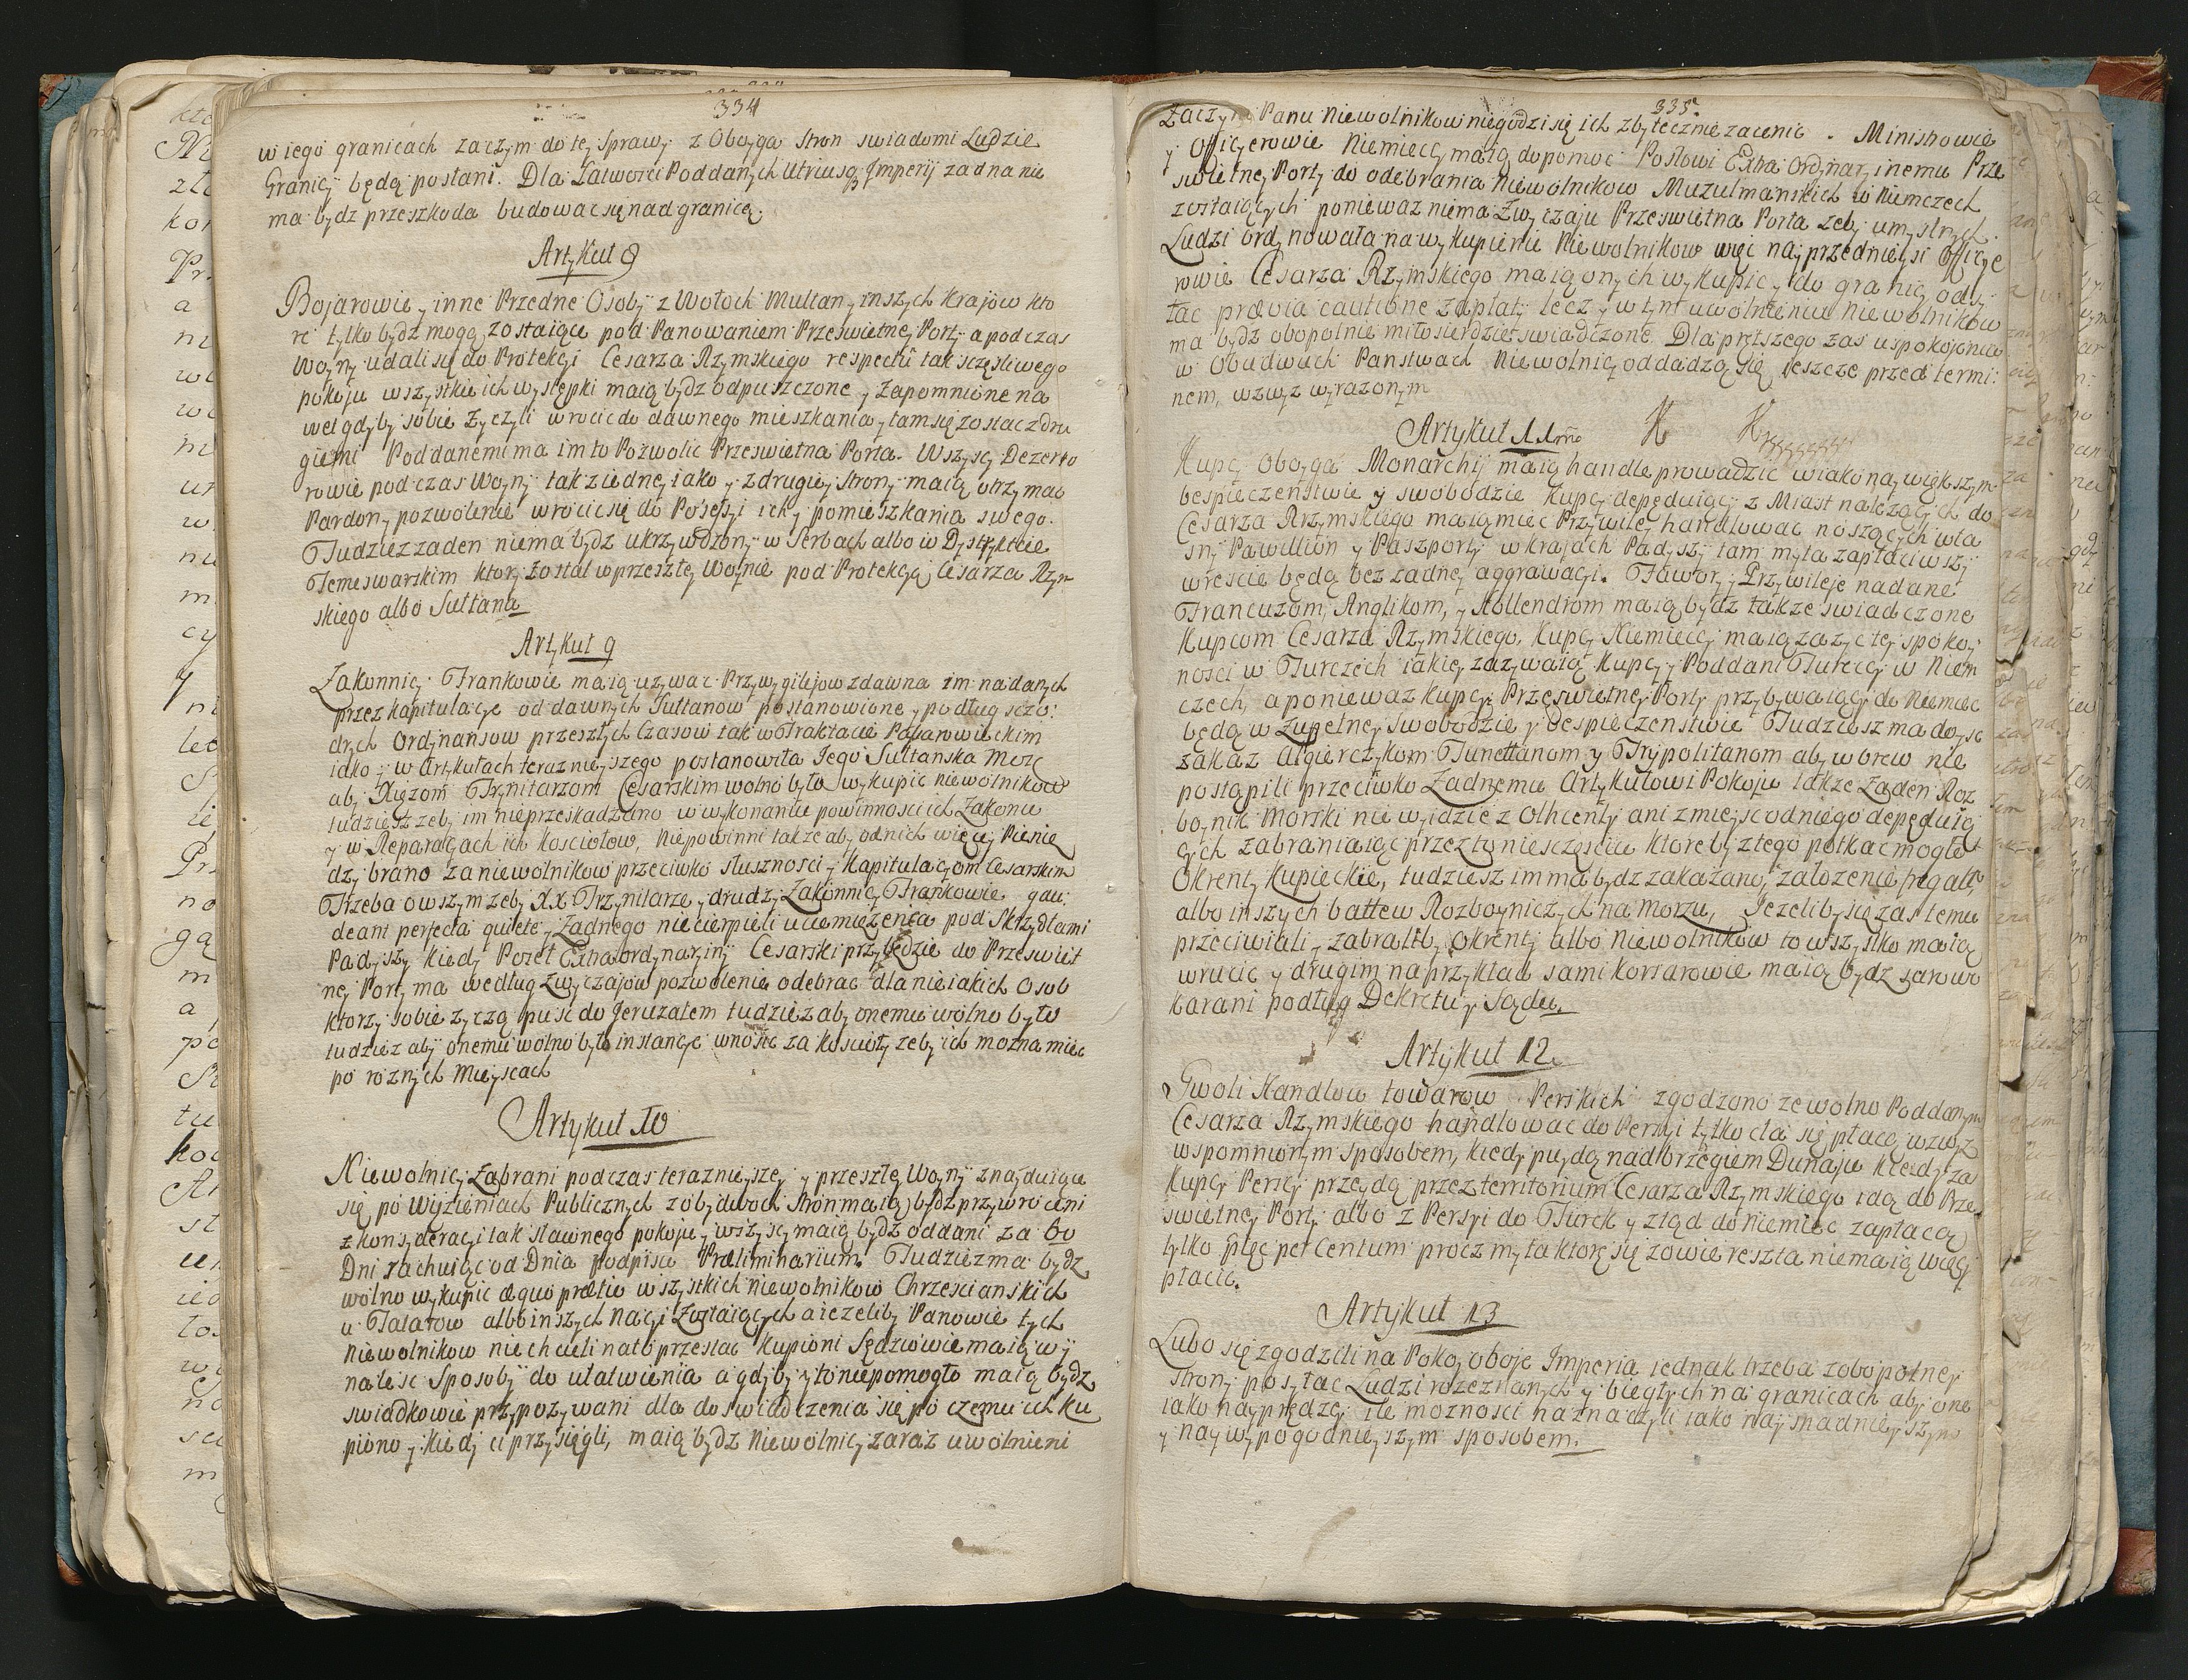 334
w iego granicach zaczym do tej Sprawy z Oboyga Stron swiadomi Ludzie
Granicy będą posłani. Dla Łatwości Poddanych Utriusq Imperij zadna nie
ma bydz przeszkoda budowac się nad granicą.
Artykuł 8
Bojarowie y inne Przedne Osoby z Wołoch Multan y inszych Krajow kto
re tylko bydz mogą zostaiące pod Panowaniem Przeswietney Porty a podczas
Woyny udali się do Protekcyi Cesarza Rzymskiego respectu tak sczęsliwego
pokoju wszystkie ich występki maią bydz odpuszczone y zapomnione na
wet gdyby sobie życzyli wrocic do dawnego mieszkania y tam się zostac z dru
giemi Poddanemi ma im to Pozwolic Przeswietna Porta. Wszyscy Dezerto
rowie podczas Woyny tak z iedney iako y z drugiey strony maią otrzymac
Pardon y pozwolenie wrocic się do Posessyi ich y pomieszkania swego.
Tudziez zaden niema bydz ukrzywdzony w Serbach albo w Dystrykcie
Temeswarskim ktory został w przeszłey Woynie pod Protekcyą Cesarza Rzym
skiego albo Sułtana
Artykuł 9
Zakonnicy Frankowie maią uzywac Przywygilejow zdawna im nadanych
przez kapitulacye od dawnych Sułtanow postanowione y podług sczo:
drych Ordynansow przeszłych Czasow tak w Traktacie Passarowickim
iako y w Artykułach teraznieyszego postanowiła Jego Sułtanska Mosc
aby Xięzom Trynitarzom Cesarskim wolno było wykupic niewolnikow
tudziesz zeby im nieprzeskadzano w wykonaniu powinnosci ich Zakonu
y w Reparacyach ich Kosciołow, niepowinni takze aby od nich więcey Pienię
dzy brano za niewolnikow przeciwko słusznosci y Kapitulacyom Cesarskim
Trzeba owszym zeby XX Trzynitarze y drudzy Zakonnicy Frankowie gau:
deant perfecta quiete y Zadnego niecierpieli uciemięzenia pod Skrzydłami
Padyszy Kiedy Poseł Extraordynaryiny Cesarski przybędzie do Przeswiet
ney Porty ma według Zwyczajow pozwolenie odebrac dla nieiakich Osob
ktorzy sobie zyczą pusc do Jeruzalem tudziez aby onemu wolno było
tudziez aby onemu wolno było instancye wnosic za koscioły zeby ich mozna miec
po roznych Mieyscach
Artykuł 10
Niewolnicy Zabrani podczas teraznieyszey y przeszłey Woyny znayduiące
się po Więzieniach Publicznych z obydwoch stron maią bydz przywroceni
z konsyderacyi tak sławnego pokoju y wszyscy maią bydz oddani za 60
Dni rachuiąc od Dnia podpisu Præliminarium. Tudziez ma bydz
wolno wykupic æquo prætio wszystkich niewolnikow Chrzescianskich
u Tatarow albo inszych Nacyi Zostaiących a iezeliby Panowie tych
Niewolnikow niechcieli na to przestac Kupioni Sędziowie maią wy
nalesc Sposoby do ułatwienia a gdyby y to niepomogło maią bydz
swiadkowie przypozywani dla doswiadczenia się po czemu ich ku
piono y kiedy ci przysięgli, maią bydz Niewolnicy zaraz uwolnieni
335
Zaczym Panu Niewolnikow niegodzi się ich zbytecznie zacenic. Ministrowie
y Officyerowie Niemieccy maią dopomoc Posłowi Extra Ordynaryinemu Prze
swietney Porty do odebrania Niewolnikow Muzulmanskich w Niemczech
zostaiących poniewaz niema Zwyczaju Przeswietna Porta zeby umyslnych
Ludzi Ordynowała na wykupienie Niewolnikow więc nayprzednieysi Officye
rowie Cesarza Rzymskiego maią onych wykupic y do granic odsy
łac prævia cautione zapłaty lecz y w tym uwolnieniu Niewolnikow
ma bydz obopolnie miłosierdzie swiadczone. Dla prętszego zas uspokojenia
w Obudwuch Panstwach Niewolnicy oddadzą się ieszcze przed termi:
nem, wzwyz wyrazonym
Artykuł 11mo K K
Kupcy Oboyga Monarchij maią handle prowadzic w iako naywiększym
bespieczenstwie y swobodzie Kupcy depęduiący z Miast nalezących do
Cesarza Rzymskiego maią miec Przywiley handlowac noszących wła
sny Pawillion y Paszporty w krajach Padyszy tam myta zapłaciwszy
wrescie będą bez zadney aggrawacyi. Fawory y Przywileje nadane
Francuzom, Anglikom, y Hollendrom maią bydz takze swiadczone
Kupcom Cesarza Rzymskiego. Kupcy Niemieccy maią zazyc tey spokoy
nosci w Turczech iakiey zazywaią Kupcy y Poddani Tureccy w Niem
czech, a poniewaz Kupcy Przeswietney Porty przybywaiący do Niemiec
będą w zupełney swobodzie y bespieczenstwie Tudziesz ma doysc
zakaz Algierczykom Tunettanom y Trypolitanom aby wbrew nie
postąpili przeciwko Zadnemu Artykułowi Pokoju takze Zaden Roz
boynik Morski niewyidzie z Olhcenty ani z mieysc od niego depęduią
cych zabraniaiąc przez to niesczęscia ktoreby z tego potkac mogło
Okrenty Kupieckie, tudziesz im ma bydz zakazano załozenie fregatty
albo inszych battew Rozboyniczych na Morzu, Jezeliby się zas temu
przeciwiali y zabraliby Okrenty albo Niewolnikow to wszystko maią
wrucic y drugim na przykład sami Korsarowie maią bydz surowo
karani podług Dekretu y Sądu.
Artykuł 12
Gwoli Handlow towarow Perskich zgodzono ze wolno Poddanym
Cesarza Rzymskiego handlowac do Persyi tylko cła się płacą wzwyz
wspomnionym sposobem, Kiedy puydą nad brzegiem Dunaju Kiedy zas
Kupcy Perscy przeydą przez territorium Cesarza Rzymskiego idą do Prze
swietney Porty albo z Persyi do Turek y ztąd do Niemiec zapłacą
tylko pięc per Centum procz myta ktore się zowie reszta niemaią więcey
płacic.
Artykuł 13
Lubo się zgodzili na Pokoy oboje Imperia iednak trzeba z obopolney
strony posyłac Ludzi rozeznanych y biegłych na granicach aby one
iako nayprędzey ile moznosci naznaczyli iako naysnadnieyszym
y naywypogodnieyszym sposobem.